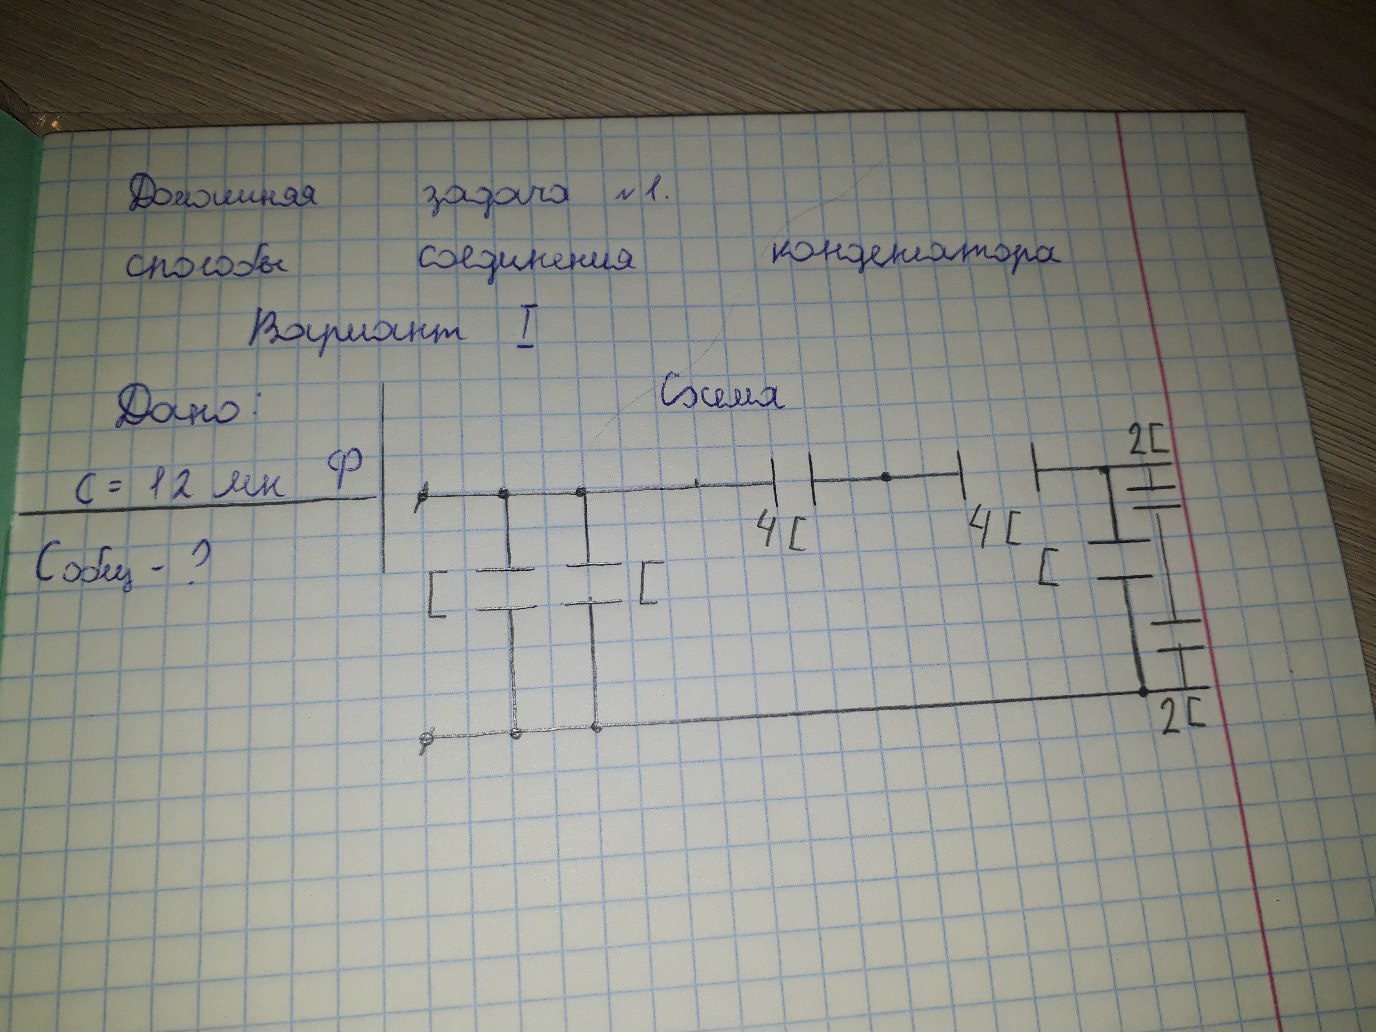 Домашняя задача №1.
способы соединения конденсатора
Вариант I
Дано:
C = 12 мк Ф
Cобщ - ?
Схема
C
C
4C
4C
C
2C
2C